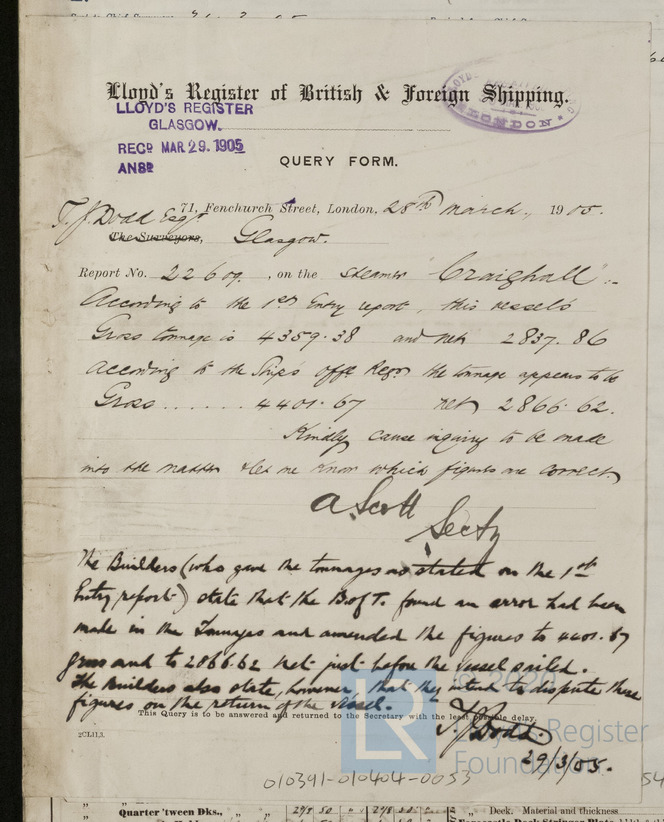 Lloyd's Register of British & Foreign Shipping.
LLOYD'S REGISTER
GLASGOW.
RECD MAR 29. 1905
ANSD
LONDON
QUERY FORM.
71, Fenchurch Street, London, 28th March, 1905.
T. J. Dodd Esqr
The Surveyors, Glasgow.
Report No. 22609, on the Steamer "Craighall".
According to the 1st Entry report, this vessel's
Gross tonnage is 4359.38 and net 2837.86
According to the Ship's offl Regr the tonnage appears to be
Gross ...... 4401.67 net 2866.62.
Kindly cause inquiry to be made
into the matter & let me know which figures are correct.
A Scott
Secty
The Builders (who gave the tonnages as stated on the 1st
Entry report) state that the B. of T. found an error had been
made in the Tonnages and amended the figures to 4401.67
gross and to 2866.62 net just before the vessel sailed.
The Builders also state, however, that they intend to dispute these
figures on the return of the vessel.
This Query is to be answered and returned to the Secretary with the least possible delay.
T J Dodd.
29/3/05.
© 2020
Lloyd's Register
Foundation
LR
010391-010404-0053
54
" Quarter 'tween Dks., " "
" Deck. Material and thickness